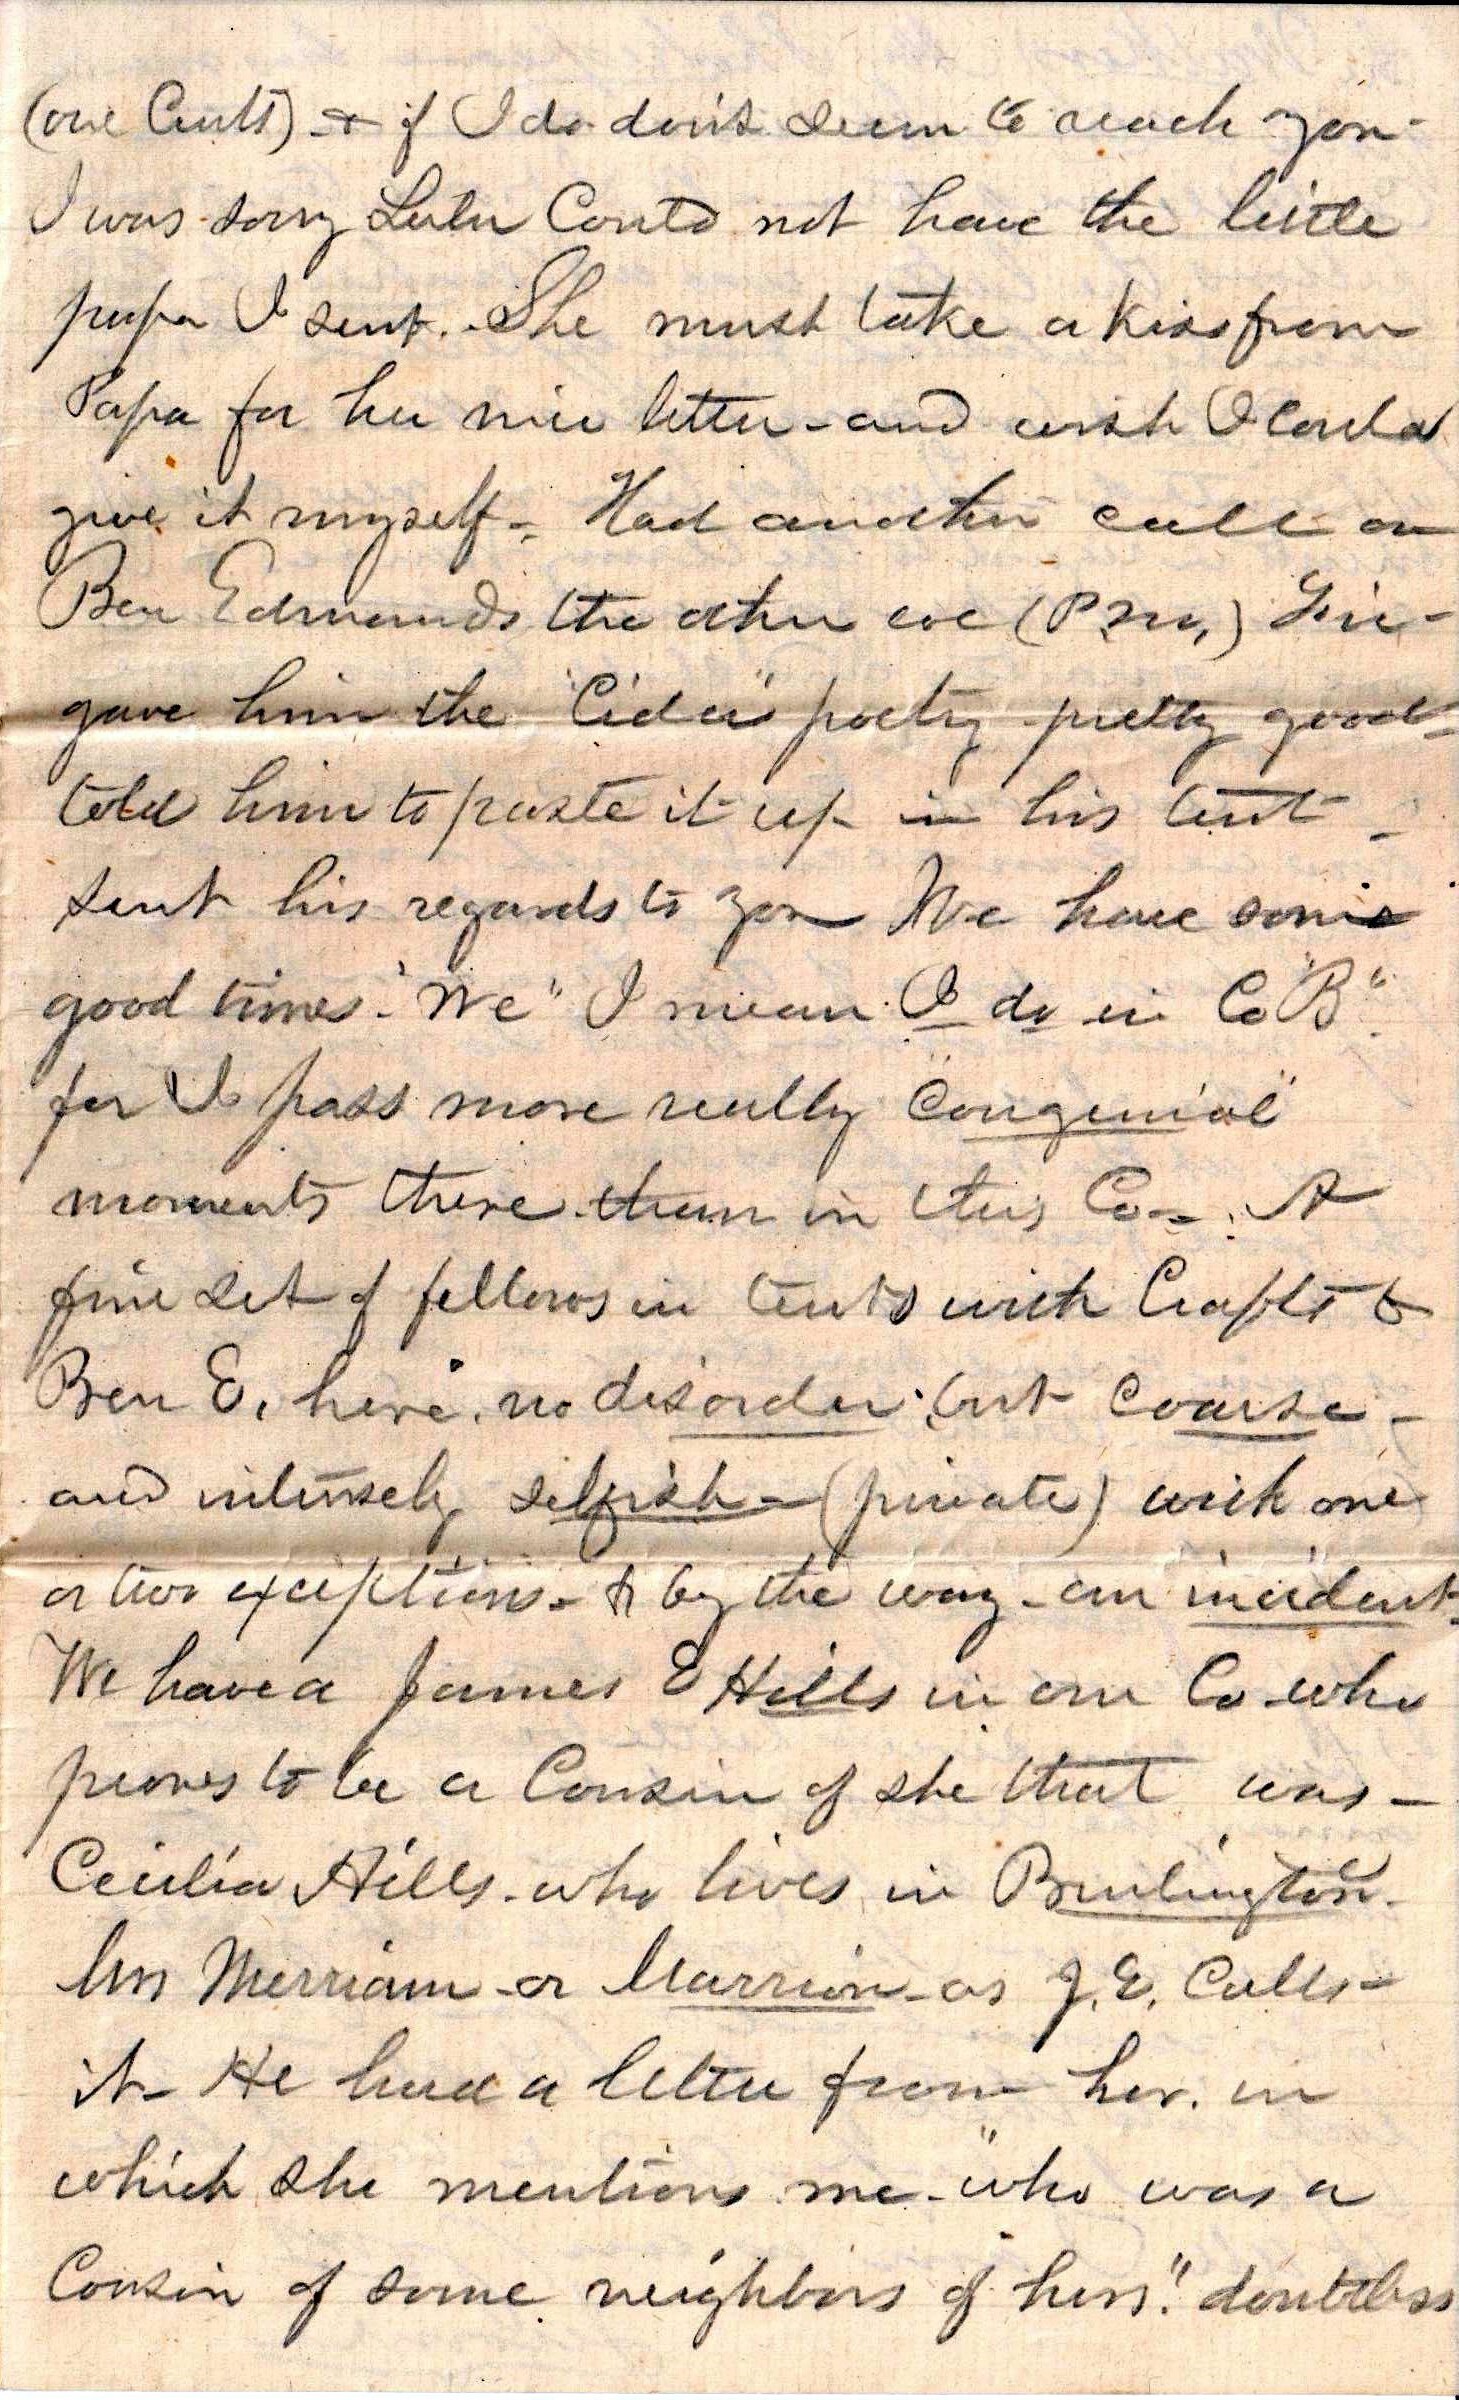 (one Cent) & if I do don't seem to reach you -
I was sorry Lulu Could not have the little
paper I sent. She must take a kiss from
Papa for her nice letter - and wish I could
give it myself - Had another call on
Ben Edmunds the other eve (P.M.)
gave him the "Cider" poetry pretty good -
told him to paste it up in his tent -
sent his regards to you We have some
good times. "We" I mean I do in Co "B".
for I pass more really "Congenial"
moments there than in this Co - A
fine set of fellows in tents with Crafts &
Ben E. here, no disorder but coarse -
and intensely selfish - (private) with one
or two exceptions - & by the way - an incident -
We have a James E Hills in our Co - who
proves to be a Cousin of she that was -
Cecilia Hills - who lives in Burlington -
Mrs Merriam - or Marrion - as J. E. Calls -
it - He had a letter from her. in
which she mentions me - "who was a
Cousin of some neighbors of hers". doubtless